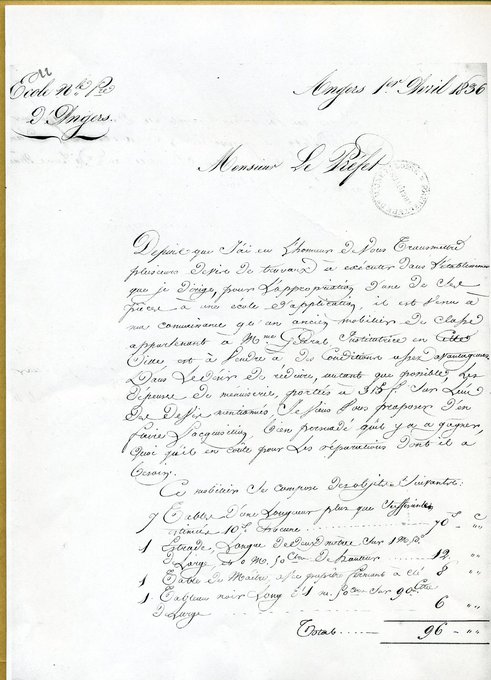 Ecole N.le P.re
d'Angers
Angers 1er Avril 1836
Monsieur Le Préfet
Depuis que J'ai eu l'honneur de Vous Transmettre
plusieurs devis de travaux à exécuter dans l'établissement
que je dirige, pour l'appropriation d'une de ses
pièces à une école d'application, il est venu à
ma connaissance qu'un ancien mobilier de classe
appartenant à Mme Institutrice en Cette
Ville est à Vendre à des Conditions assez avantageuses
Dans Le désir de réduire, autant que possible, Les
dépenses de menuiserie, portées à 315f sur L'un
des devis mentionnés Je Viens Vous proposer d'en
faire l'acquisition, bien persuadé qu'il y a à gagner
quoi qu'il en coute pour Les réparations dont il a
besoin.
Ce mobilier Se compose des objets Suivants:
7 Tables d'une Longueur plus que suffisante
estimées 10f chacune 70f " c
1 Estrade, Longue de deux mètres sur 1 m.
de Large, et 0 m. 50 cm de hauteur 12 "
1 Table de Maitre, fermant à clé 8 "
1 Tableau noir Long d'1 m. 50cm sur 90 cm
de Large 6 "
Total 96 "